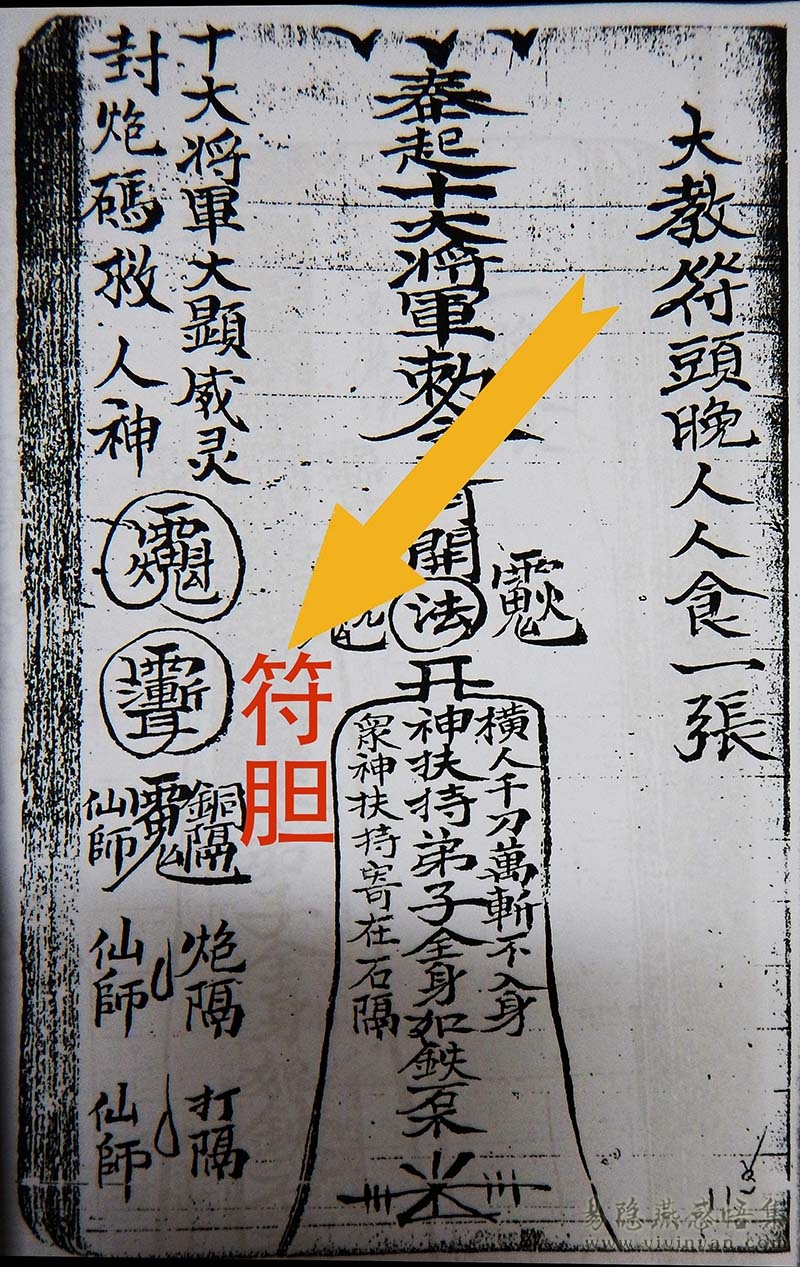 大教符頭晚人人食一張
奉起十大将軍勅令
開
法
橫人千刀萬斬不入身
神扶持弟子全身如鉄石
眾神扶持寄在石隔
符胆
十大将軍大顯威灵
封炮碼救人神
銅隔
仙師
炮隔
仙師
打隔
仙師
易隐燕感悟集
www.yiyinyan.com